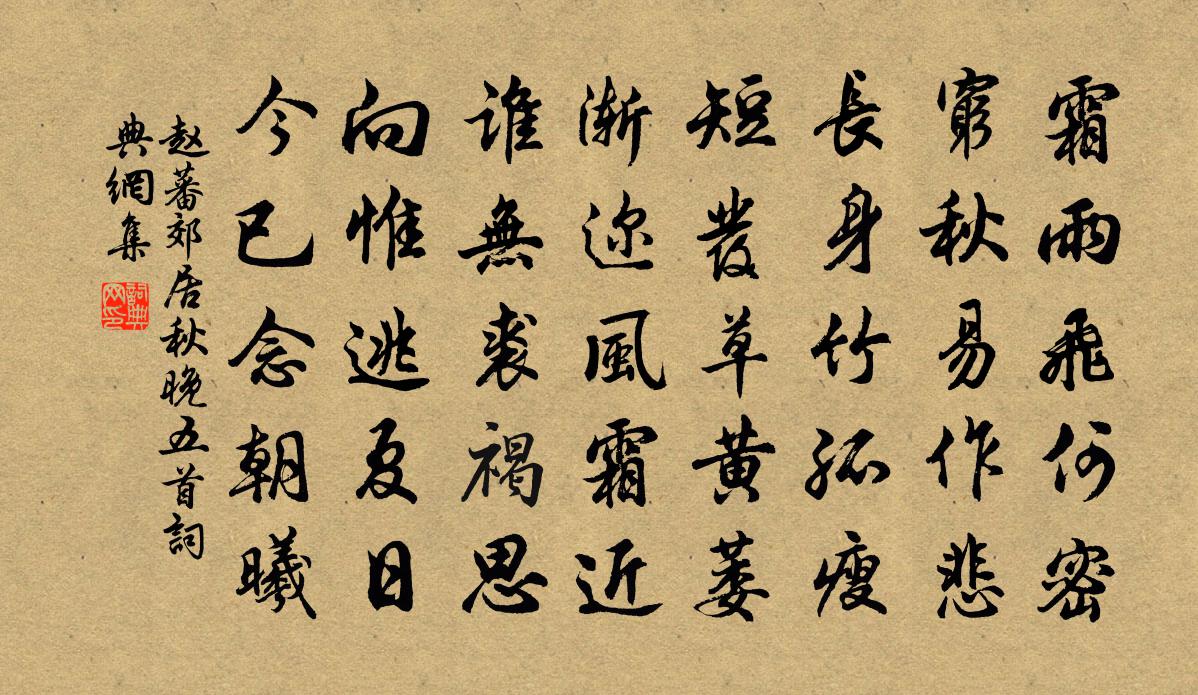 霜雨飛何密
窮秋易作悲
長身竹孤瘦
短發草黄萎
漸迩風霜近
誰無裘褐思
向惟逃夏日
今已念朝曦
赵蕃郊居秋晚五首詞
典網集
詞典
网印